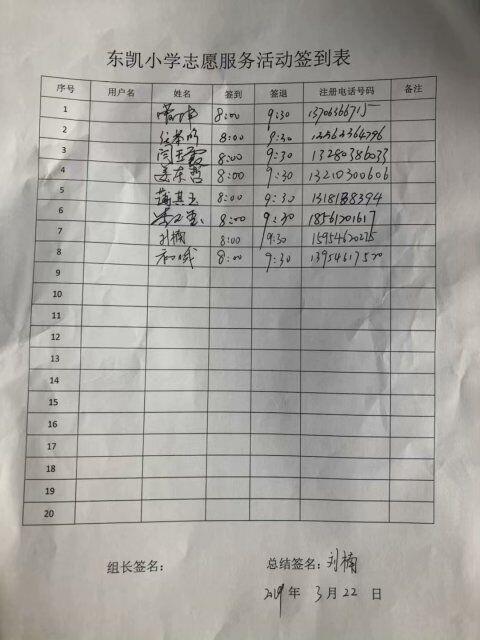 东凯小学志愿服务活动签到表
序号 用户名 姓名 签到 签退 注册电话号码 备注
1 8:00 9:30 13706366715
2 8:00 9:30
3 闫玉霞 8:00 9:30 13280386033
4 姜东哲 8:00 9:30 13210300606
5 薄其玉 8:00 9:30
6 8:00 9:30 18561201617
7 刘楠 8:00 9:30 15954620275
8 8:00 9:30 13954617520
9
10
11
12
13
14
15
16
17
18
19
20
组长签名： 总结签名：刘楠
2019 年 3 月 22 日